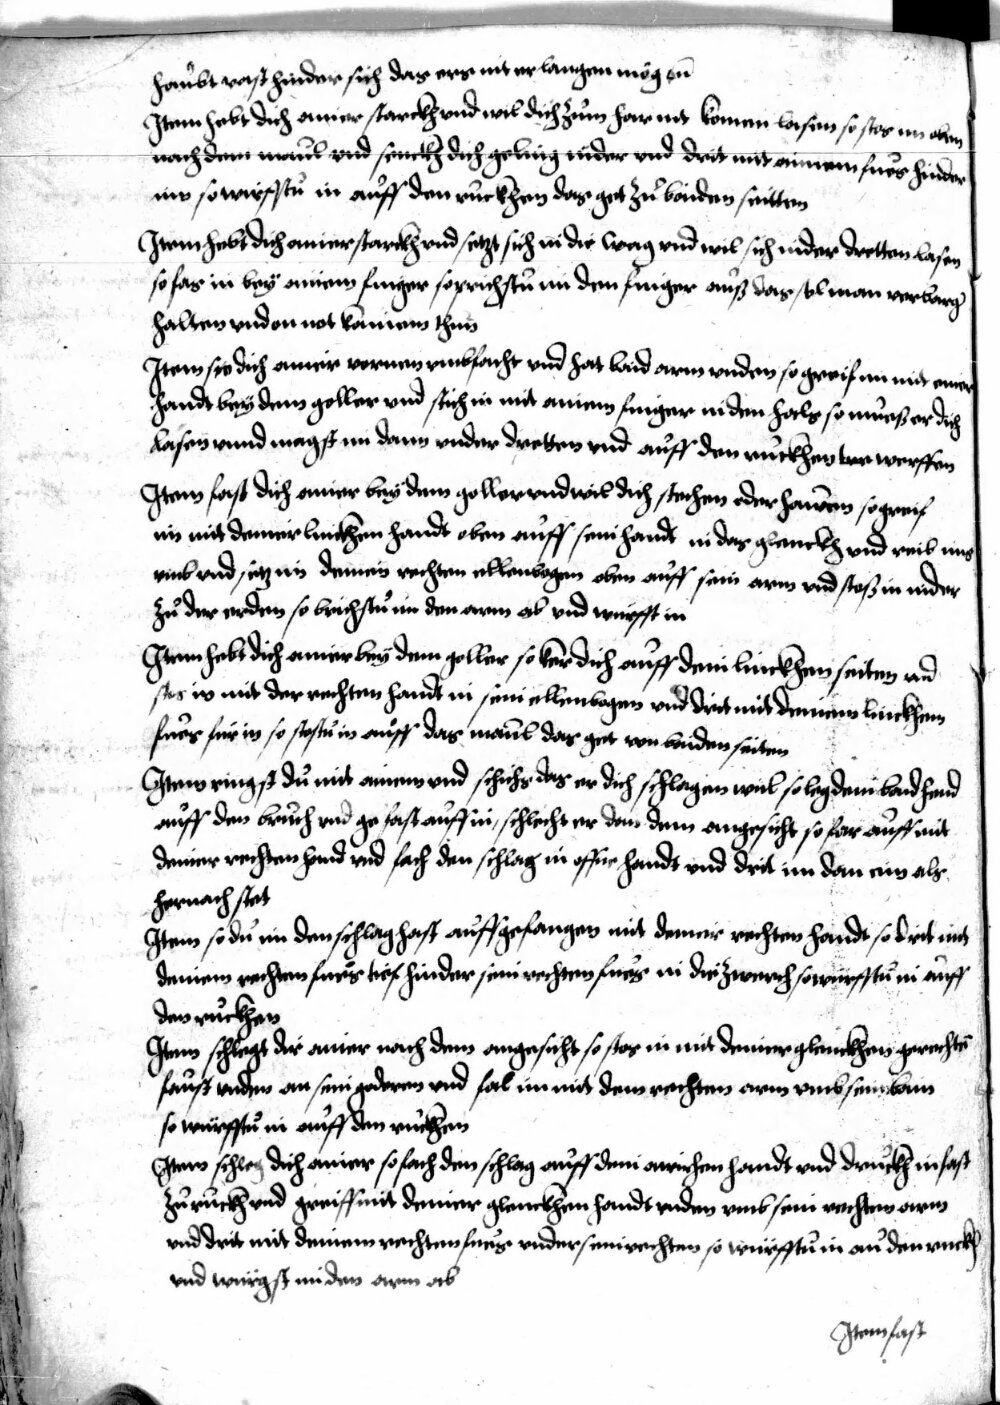 haubt vast hinder sich das ers nit erlangen mög
Item hebt dich ainer starckh vnd wil dich zům har nit komen lasen so stos im oben
nach dem maul vnd senckh dich geling nider vnd drit mit ainem fues hinder
im so wirfstu in auff den ruckhen das get zu baiden seitten
Item hebt dich ainer starckh vnd setzt sich in die wag vnd wil sich nider dretten lasen
so fas in bey ainem finger so prichstu im den finger auß das sol man verborg
halten vnd on not kainem thun
Item so dich ainer vornen vmbfacht vnd hat baid arm vnden so greif im mit ainer
handt bey dem goller vnd stich in mit ainem finger in den hals so mueß er dich
lasen vnnd magst im dann vnder dretten vnd auff den ruckhen werffen
Item fast dich ainer bey dem goller vnd wil dich stechen oder hawen so greif
im mit deiner linckhen handt oben auff sein handt in das glenckh vnd reib
vmb vnd setz im deinen rechten ellenbogen oben auff sein arm vnd stoß in nider
zu der erden so brichstu im den arm ab vnd wurfst in
Item hebt dich ainer bey dem goller so ker dich auff dein linckhen seiten vnd
stos in mit der rechten handt in sein ellenbogen vnd drit mit deinem linckhen
fues für in so stostu in auff das maul das get von baiden seiten
Item ringst du mit ainem vnd schichs das er dich schlagen wil so leg dein baid hend
auff den bruch vnd ge fast auff in, schlecht er dan dem angesicht so far auff mit
deiner rechten hand vnd fach den schlag in offne handt vnd drit im dan ein als
hernach stet
Item so du im den schlag hast auffgefangen mit deiner rechten handt so drit mit
deinem rechten fues tief hinder sein rechten fues in die zwerch so wurfftu in auff
den ruckhen
Item schlegt dir ainer nach dem angesicht so stos in mit deiner glenckhen gerechte
faust vnden an sein gederm vnd fal im mit dem rechten arm vmb sein bain
so wurfftu in auff den ruckhen
Item schlegt dich ainer so fach den schlag auff dein aichen handt vnd druckh in fast
zuruckh vnd greiff mit deiner glenckhen handt vnden vmb sein rechten arm
vnd drit mit deinem rechten fues vnder sein rechten so wurfftu in au den ruckh
vnd wurgst im den arm ab
Item fast